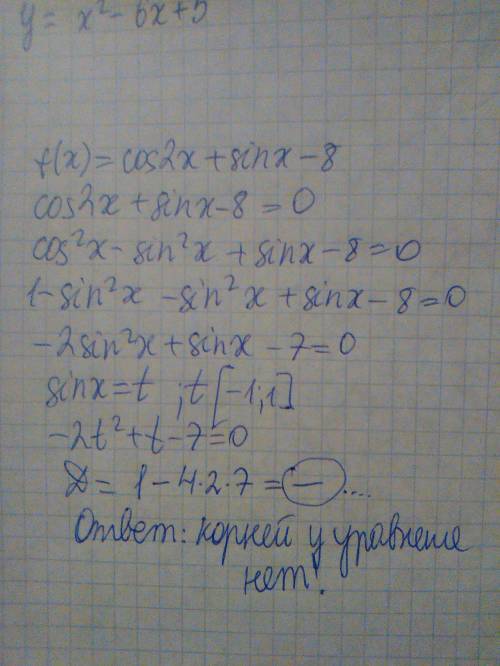 y = x² - 6x + 5
f(x) = cos2x + sinx - 8
cos2x + sinx - 8 = 0
cos²x - sin²x + sinx - 8 = 0
1 - sin²x - sin²x + sinx - 8 = 0
-2sin²x + sinx - 7 = 0
sinx = t ; t [-1;1]
-2t² + t - 7 = 0
D = 1 - 4·2·7 = - ....
Ответ: корней у уравнения
нет!